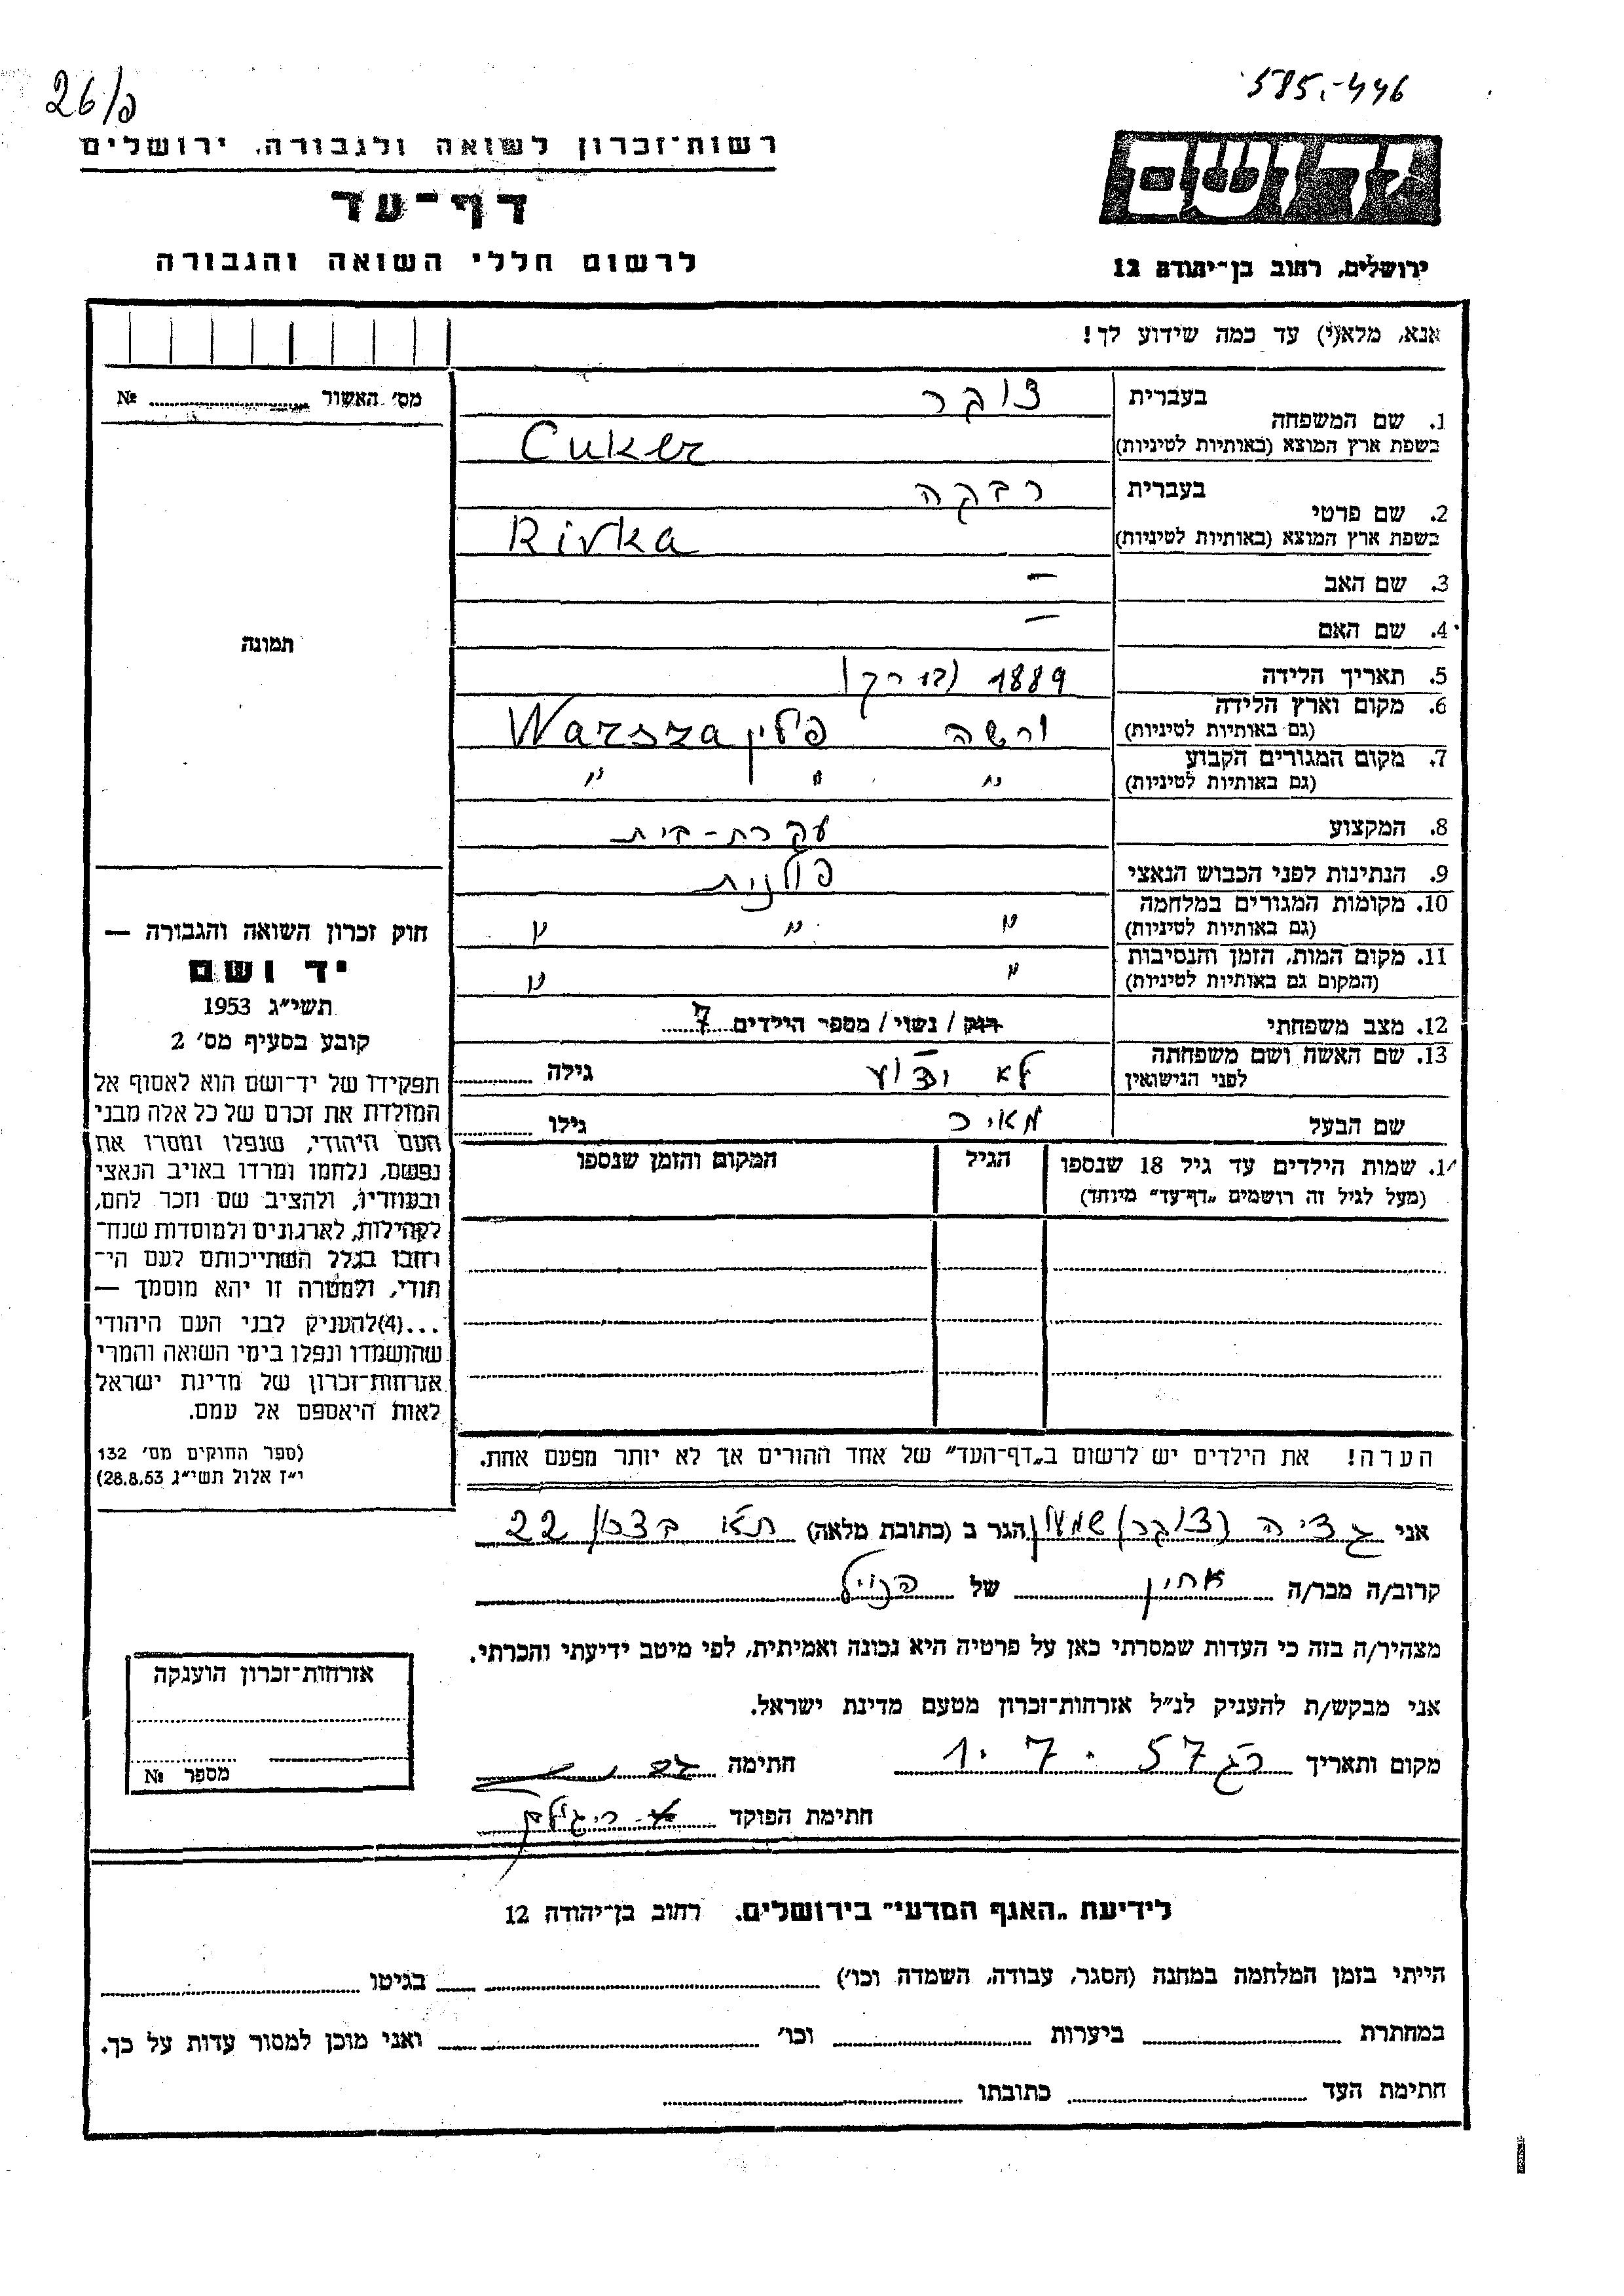 26/פ
585.-446
רשות־זכרון לשואה ולגבורה, ירושלים
דף־עד
לרשום חללי השואה והגבורה
יד ושם
ירושלים, רחוב בן־יהודה 12
אנא, מלא(י) עד כמה שידוע לך!
מס׳ האשור № 
1. שם המשפחה
בעברית צוקר
בשפת ארץ המוצא (באותיות לטיניות) Cuker
2. שם פרטי
בעברית רבקה
בשפת ארץ המוצא (באותיות לטיניות) Rivka
3. שם האב –
4. שם האם –
תמונה
5. תאריך הלידה 1889
6. מקום וארץ הלידה
(גם באותיות לטיניות) ורשה פולין Warsza
7. מקום המגורים הקבוע
(גם באותיות לטיניות) " " "
8. המקצוע עקרת-בית
9. הנתינות לפני הכבוש הנאצי פולנית
10. מקומות המגורים במלחמה
(גם באותיות לטיניות) " " "
11. מקום המות, הזמן והנסיבות
(המקום גם באותיות לטיניות) " "
12. מצב משפחתי רוק / נשוי / מספר הילדים 7
13. שם האשה ושם משפחתה
לפני הנישואין לא ידוע גילה
שם הבעל מאיר גילו
14. שמות הילדים עד גיל 18 שנספו
(מעל לגיל זה רושמים „דף־עד״ מיוחד)
הגיל
המקום והזמן שנספו
חוק זכרון השואה והגבורה —
יד ושם
תשי״ג 1953
קובע בסעיף מס׳ 2
תפקידו של יד־ושם הוא לאסוף אל
המולדת את זכרם של כל אלה מבני
העם היהודי, שנפלו ומסרו את
נפשם, נלחמו ומרדו באויב הנאצי
ובעוזריו, ולהציב שם וזכר להם,
לקהילות, לארגונים ולמוסדות שנח־
רחבו בגלל השתייכותם לעם הי־
הודי, ולמטרה זו יהא מוסמך —
...(4)להעניק לבני העם היהודי
שהושמדו ונפלו בימי השואה והמרי
אזרחות־זכרון של מדינת ישראל
לאות היאספם אל עמם.
(ספר החוקים מס׳ 132
י״ז אלול תשי״ג 28.8.53)
הערה! את הילדים יש לרשום ב„דף־העד״ של אחד ההורים אך לא יותר מפעם אחת.
אני (צוקר) שמעון הגר ב (כתובת מלאה) תא 22
קרוב/ה מכר/ה אחין של הנ״ל
מצהיר/ה בזה כי העדות שמסרתי כאן על פרטיה היא נכונה ואמיתית, לפי מיטב ידיעתי והכרתי.
אני מבקש/ת להעניק לנ״ל אזרחות־זכרון מטעם מדינת ישראל.
מקום ותאריך רג 1.7.57 חתימה
חתימת הפוקד
אזרחות־זכרון הוענקה
מספר №
לידיעת „האגף המדעי״ בירושלים, רחוב בן־יהודה 12
הייתי בזמן המלחמה במחנה (הסגר, עבודה, השמדה וכו׳) בגיטו
במחתרת ביערות וכו׳ ואני מוכן למסור עדות על כך.
חתימת העד כתובתו